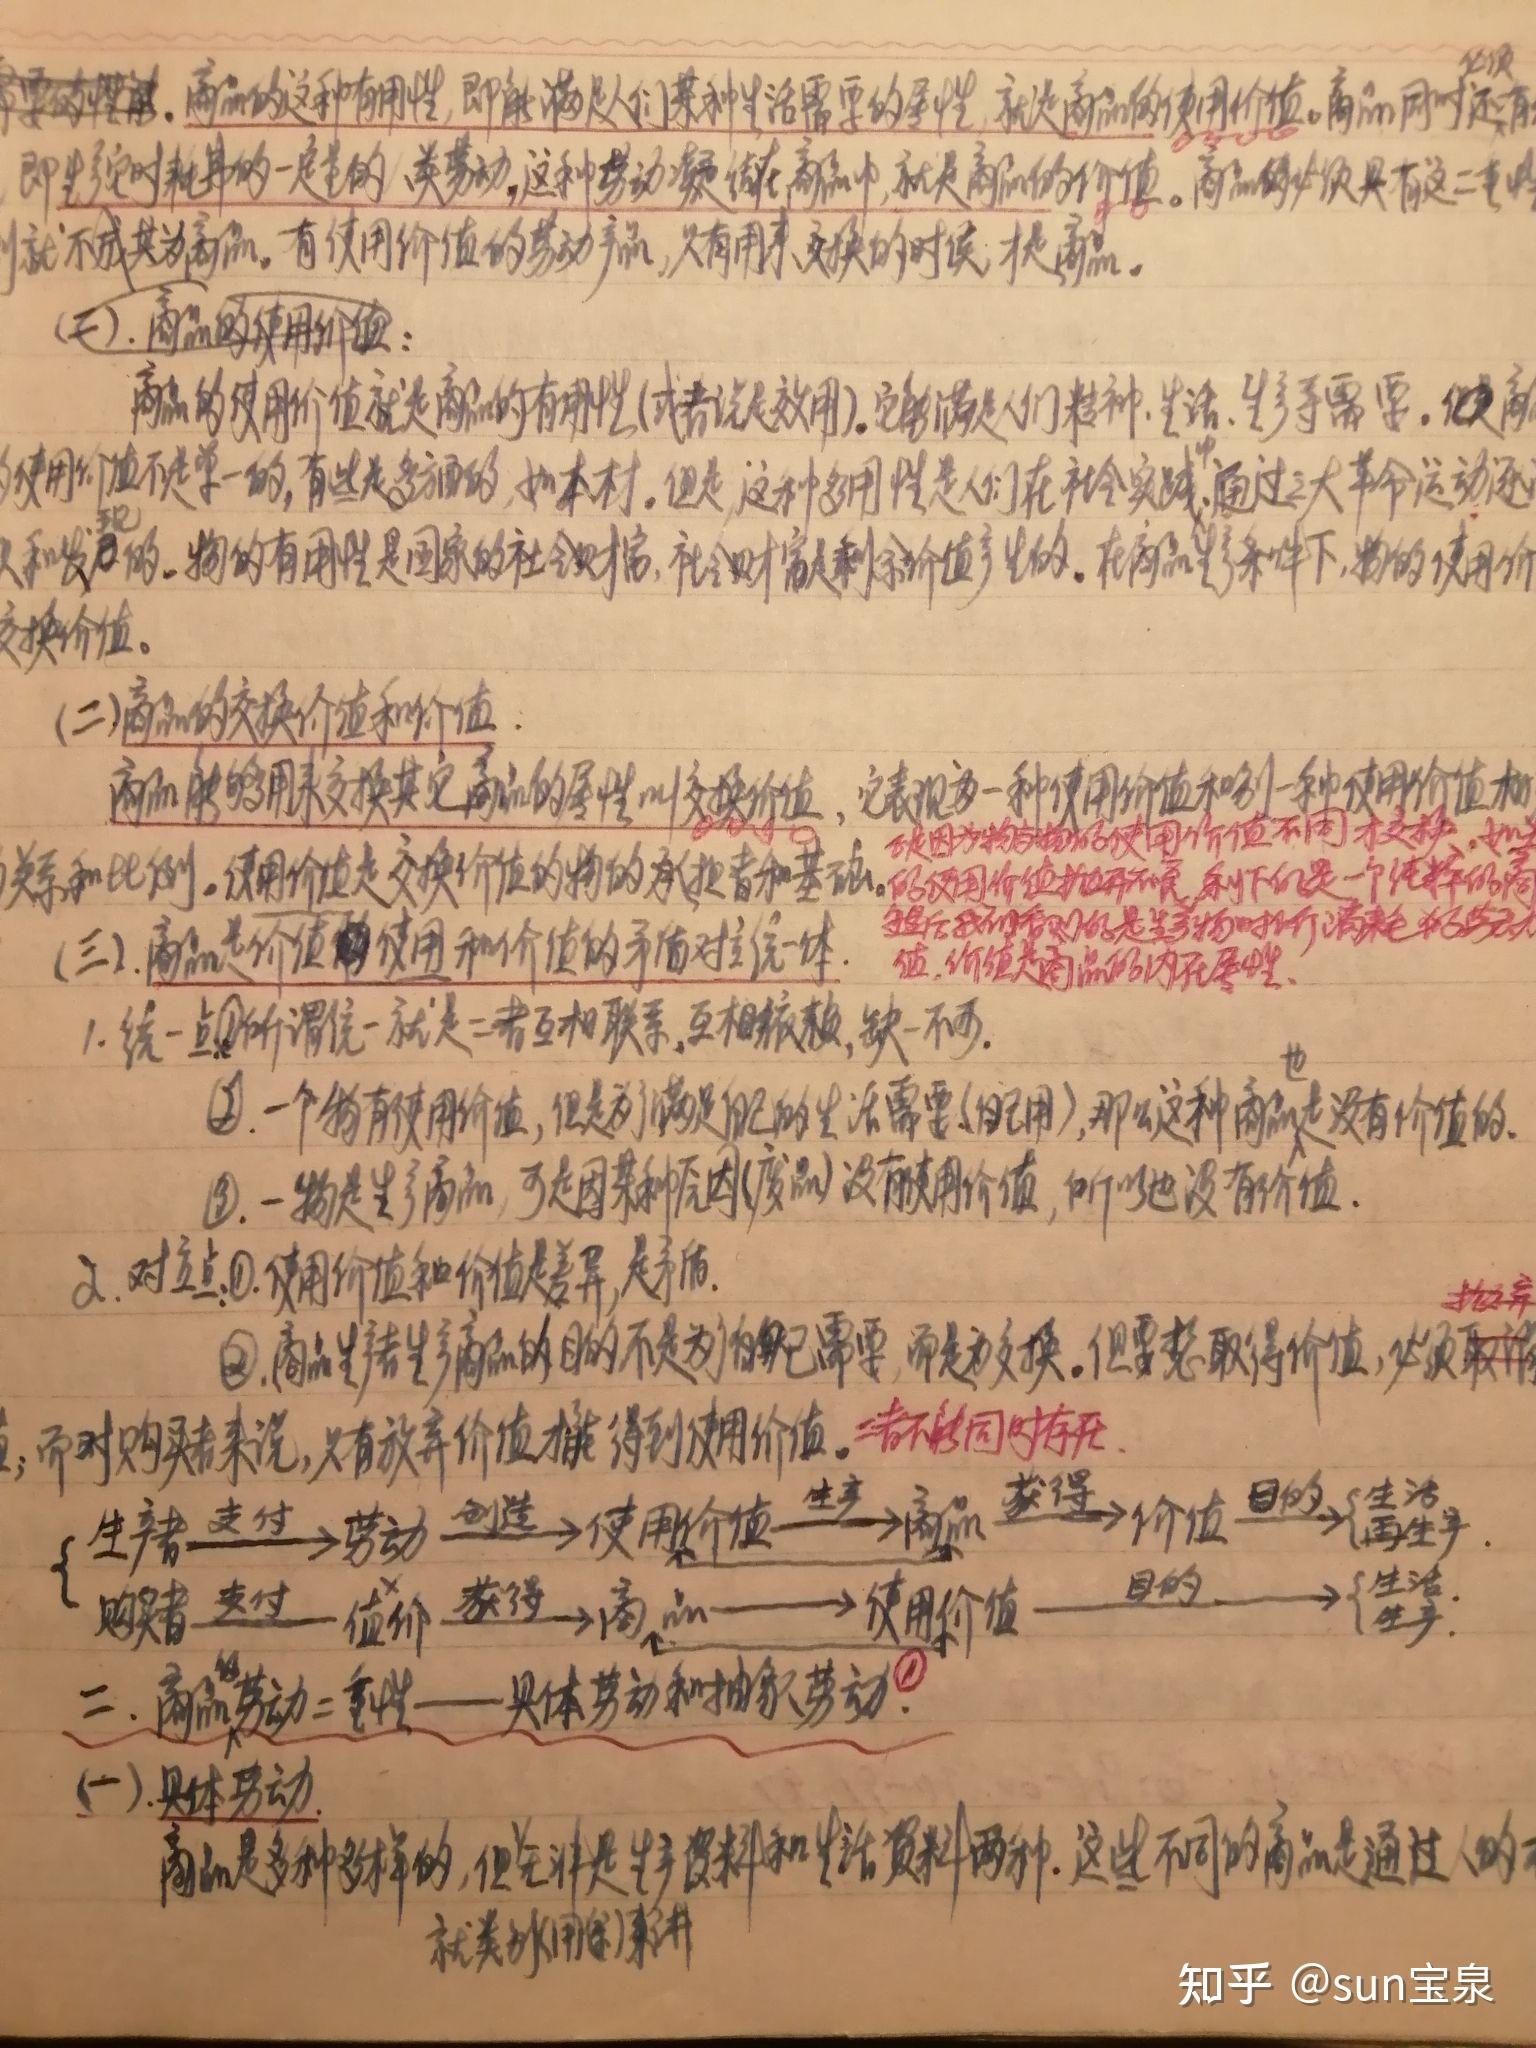 必须
商品的这种有用性,即能满足人们某种生活需要的属性,就是商品的使用价值。商品同时还有
即生产它时耗费的一定量的人类劳动,这种劳动凝结在商品中,就是商品的价值。商品的必须具有这二重性
就不成其为商品。有使用价值的劳动产品,只有用来交换的时候,才是商品。
(一).商品的使用价值:
商品的使用价值就是商品的有用性(或者说是效用)。它能满足人们精神、生活、生产等需要。但是商品
的使用价值不是单一的,有些是多方面的,如木材。但是,这种多用性是人们在社会实践中,通过三大革命运动逐
和发现的。物的有用性是国家的社会财富,社会财富是剩余价值产生的。在商品生产条件下,物的使用价
交换价值。
(二)商品的交换价值和价值:
商品能够用来交换其它商品的属性叫交换价值,它表现为一种使用价值和别一种使用价值相
关系和比例。使用价值是交换价值的物的承担者和基础。
正是因为物与物的使用价值不同才交换,如
的使用价值抛开不管,剩下的是一个纯粹的商
最后我们看到的是生产物时所消耗的劳动
值.价值是商品的内在属性.
(三).商品是价值使用和价值的矛盾对立统一体.
1.统一点:①所谓统一就是二者互相联系,互相依赖,缺一不可.
②.一个物有使用价值,但是为了满足自己的生活需要(自己用),那么这种商品也是没有价值的.
③.一物是生产商品,可是因某种原因(废品)没有使用价值,所以也没有价值.
2.对立点:①.使用价值和价值是差异,是矛盾.
②.商品生产者生产商品的目的不是为了自己需要,而是为交换。但要想取得价值,必须抛弃
值;而对购买者来说,只有放弃价值才能得到使用价值。二者不能同时存在.
生产者 支付→ 劳动 创造→ 使用价值 生产→ 商品 获得→ 价值 目的→ {生活 再生产.
购买者 支付 值价 获得→ 商品 → 使用价值 目的→ {生活. 生产.
二.商品的劳动二重性——具体劳动和抽象劳动.①
(一).具体劳动.
商品是多种多样的,但无非是生产资料和生活资料两种.这些不同的商品是通过人的
就类别(用途)来讲
知乎 @sun宝泉